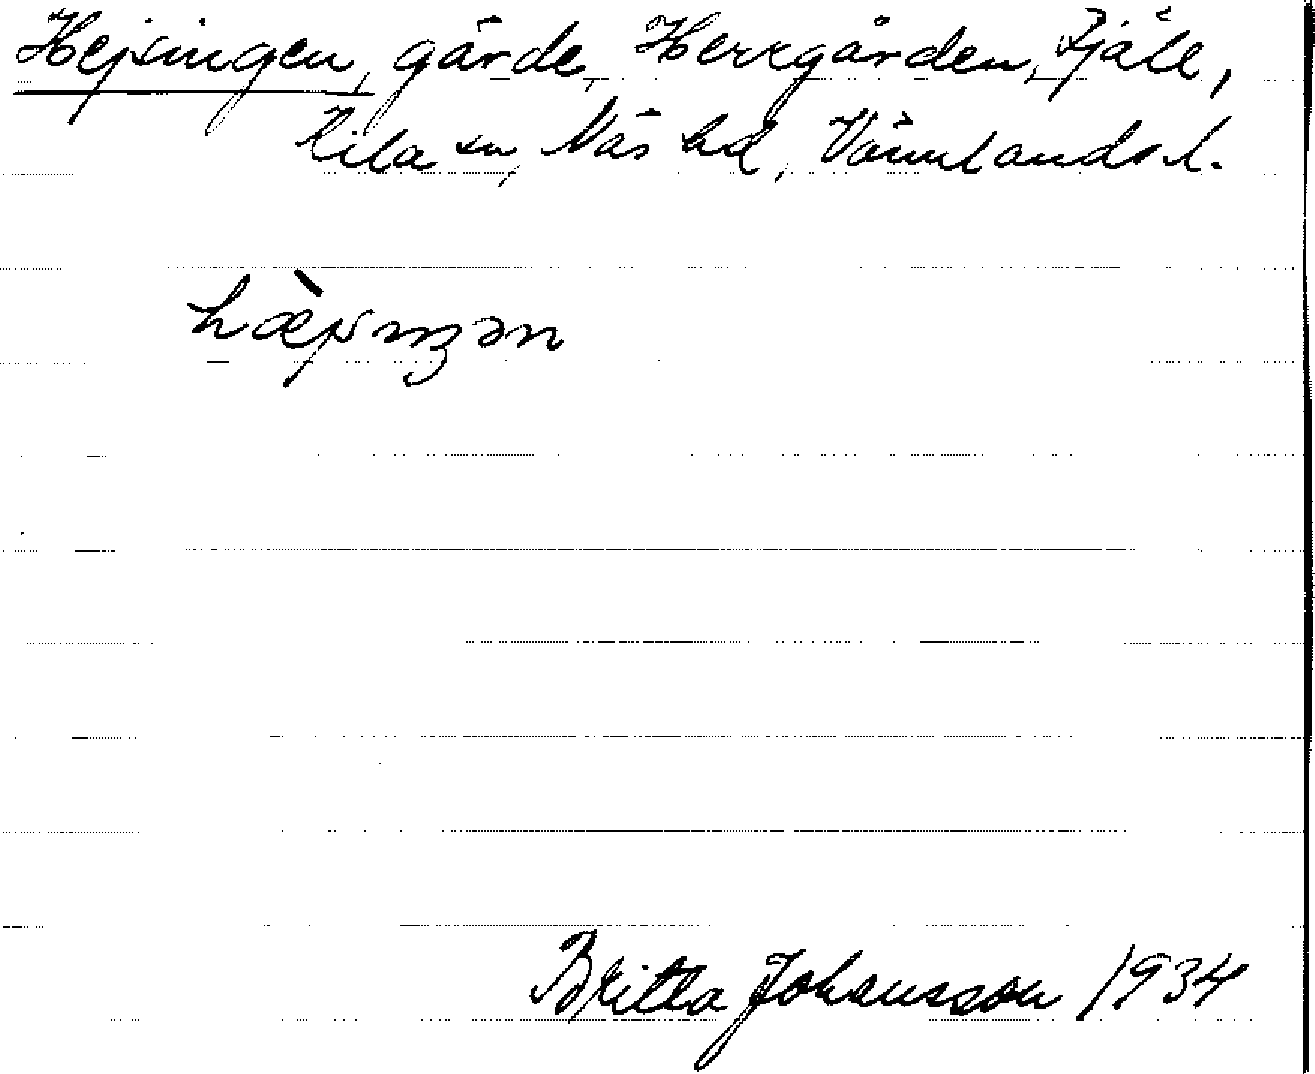 Hejsingen, gärde, Herrgården, Fjäle,
Kila sn, Näs hd, Värmlands l.
hæ̀jsıŋən
Britta Johansson 1934